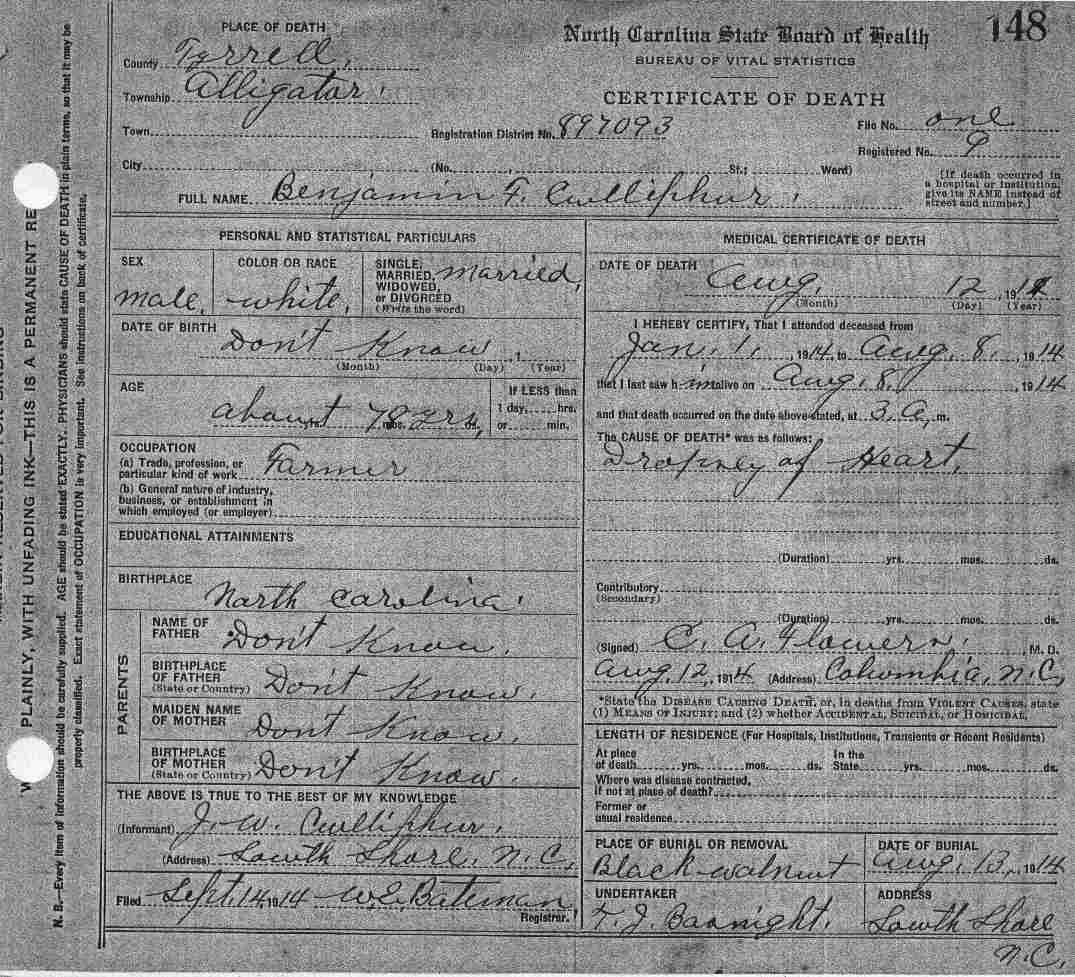 148
North Carolina State Board of Health
BUREAU OF VITAL STATISTICS
CERTIFICATE OF DEATH
PLACE OF DEATH
County Tyrrell
Township Alligator
Town
Registration District No. 897093
File No. one
Registered No. 9
City (No. , St.; Ward)
[If death occurred in a hospital or institution, give its NAME instead of street and number.]
FULL NAME Benjamin F. Culliphur
PERSONAL AND STATISTICAL PARTICULARS
SEX
male,
COLOR OR RACE
white,
SINGLE, MARRIED, WIDOWED, or DIVORCED (Write the word) married,
DATE OF BIRTH
Don't Know , 1
(Month) (Day) (Year)
AGE
about 70 yrs,
mos.
If LESS than
1 day, hrs.
or min.
OCCUPATION
(a) Trade, profession, or
particular kind of work Farmer
(b) General nature of industry,
business, or establishment in
which employed (or employer)
EDUCATIONAL ATTAINMENTS
BIRTHPLACE
North Carolina
PARENTS
NAME OF
FATHER Don't Know.
BIRTHPLACE
OF FATHER
(State or Country) Don't Know.
MAIDEN NAME
OF MOTHER Don't Know
BIRTHPLACE
OF MOTHER
(State or Country) Don't Know.
THE ABOVE IS TRUE TO THE BEST OF MY KNOWLEDGE
(Informant) J. W. Culliphur.
(Address) South Shore, N.C.
Filed Sept. 14 1914 W.E. Bateman
Registrar.
MEDICAL CERTIFICATE OF DEATH
DATE OF DEATH
Aug. 12, 191
(Month) (Day) (Year)
I HEREBY CERTIFY, That I attended deceased from
Jan. 1. , 1914, to Aug. 8. , 1914
that I last saw h im alive on Aug. 8. , 1914
and that death occurred on the date above stated, at 3 a. m.
The CAUSE OF DEATH* was as follows:
Dropsey of Heart.
(Duration) yrs. mos. ds.
Contributory
(Secondary)
(Duration) yrs. mos. ds.
(Signed) C. A. Flowers. , M. D.
Aug. 12, 1914 (Address) Columbia, N.C.
*State the DISEASE CAUSING DEATH, or, in deaths from VIOLENT CAUSES, state
(1) MEANS OF INJURY; and (2) whether ACCIDENTAL, SUICIDAL, or HOMICIDAL.
LENGTH OF RESIDENCE (For Hospitals, Institutions, Transients or Recent Residents)
At place
of death yrs. mos. ds.
In the
State yrs. mos. ds.
Where was disease contracted,
if not at place of death?
Former or
usual residence
PLACE OF BURIAL OR REMOVAL
Black walnut
DATE OF BURIAL
Aug. 13, 1914
UNDERTAKER
ADDRESS
South Shore
N.C.
PLAINLY, WITH UNFADING INK—THIS IS A PERMANENT RE
N. B.—Every item of information should be carefully supplied. AGE should be stated EXACTLY. PHYSICIANS should state CAUSE OF DEATH in plain terms, so that it may be
properly classified. Exact statement of OCCUPATION is very important. See instructions on back of certificate.